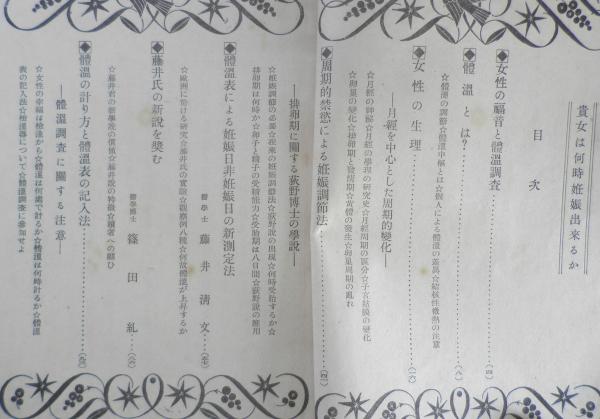 貴女は何時妊娠出来るか
目次
◆女性の福音と體溫調査……(四)
◆體溫とは?……(八)
☆體溫の調節☆體溫中樞とは☆個人による體溫の差異☆結核性微熱の注意
◆女性の生理……
―月經を中心とした周期的變化―
☆月經の神秘☆月經の學理の研究史☆月經周期の區分☆子宮粘膜の變化
☆卵巢の變化☆排卵期と發情期☆黃體の發生☆卵巢周期の亂れ
◆周期的禁慾による妊娠調節法……
―排卵期に關する荻野博士の學說―
☆妊娠調節の必要☆從來の妊娠調節法☆荻野說の出現☆何時受胎するか☆
排卵期は何時か☆卵子と精子の受精能力☆受胎期は八日間☆荻野說の應用
◆體溫表による妊娠日非妊娠日の新測定法
醫學士 藤井淸文……
☆歐洲に於ける硏究☆藤井氏の實驗☆觀察例八種☆何故體溫が上昇するか
◆藤井氏の新說を奬む
醫學博士 篠田糺……
☆藤井君の新學說の價値☆藤井說の特徵☆讀者への願ひ
◆體溫の計り方と體溫表の記入法……
―體溫調査に關する注意―
☆女性の幸福は檢溫から☆體溫は何處で計るか☆體溫は何時計るか☆體溫
表の記入法☆檢溫器について☆體溫調査に參加せよ